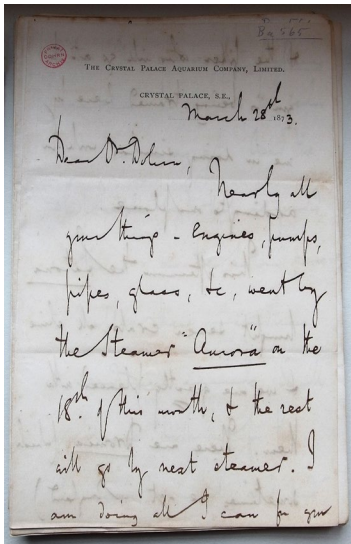 Ba 565
THE CRYSTAL PALACE AQUARIUM COMPANY, LIMITED.
CRYSTAL PALACE, S.E.,
March 28th 1873.
Dear Dr. Dohrn,
Nearly all
your things - Engines, pumps,
pipes, glass, &c, went by
the Steamer "Aurora" on the
18th of this month, & the rest
will go by next steamer. I
am doing all I can for your